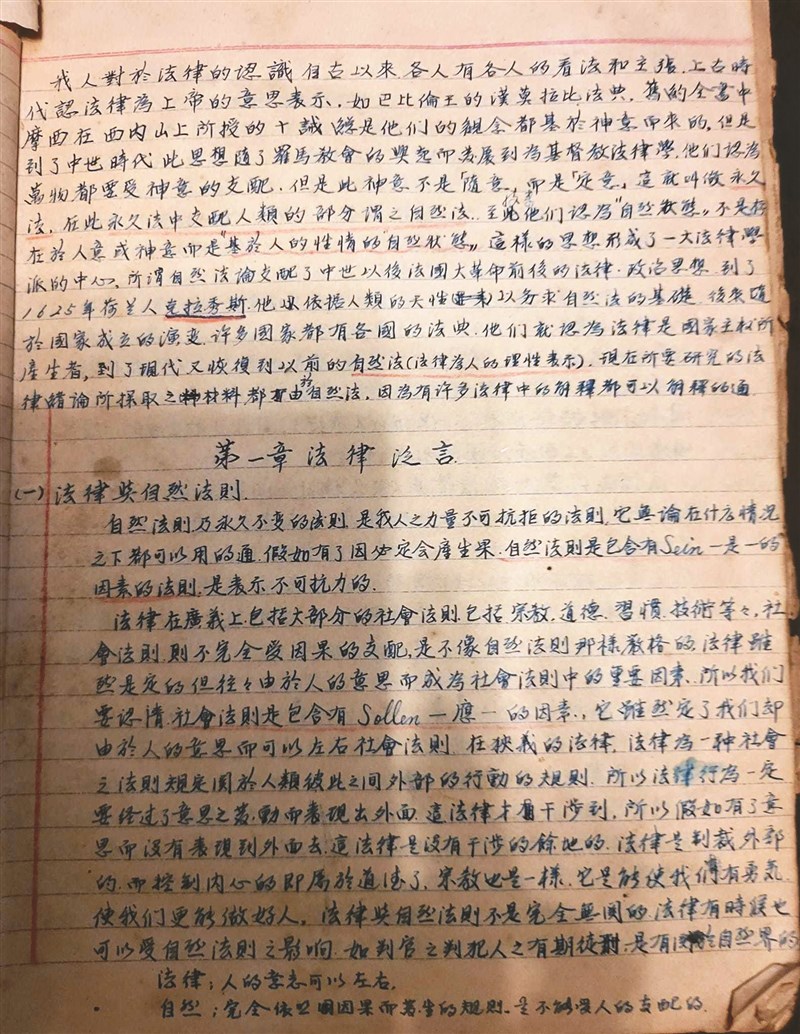 我人對於法律的認識自古以來各人有各人的看法和主張.上古時
代認法律為上帝的意思表示.如巴比倫王的漢莫拉比法典.舊的全書中
摩西在西內山上所授的十誡總是他們的觀念都基於神意而來的.但是
到了中世時代此思想隨了羅馬教會的興起而發展到為基督教法律學.他們認為
萬物都要受神意的支配.但是此神意不是「隨意」而是「定意」這就叫做永久
法.在此永久法中支配人類的部分謂之自然法.至此他們認為"自然狀態"不是存
在於人意或神意而是"基於人的性情的自然狀態"這樣的思想形成了一大法律學
派的中心.所謂自然法論支配了中世以後法國大革命前後的法律.政治思想.到了
1625年荷蘭人克拉秀斯.他以依據人類的天性以夯求自然法的基礎.後來隨
於國家成立的演變.許多國家都有各國的法典.他們就認為法律是國家主权所
產生者,到了現代又恢復到以前的自然法(法律為人的理性表示).現在所要研究的法
律緒論所採取之材料都由於自然法.因為有許多法律中的解釋都可以解釋的通
第一章法律泛言.
(一)法律與自然法則.
自然法則乃永久不变的法則.是我人之力量不可抗拒的法則.它無論在什么情况
之下都可以用的通.假如有了因必定会產生果.自然法則是包含有Sein—是—的
因素的法則.是表示不可抗力的.
法律在廣義上包括大部分的社會法則.包括宗教.道德.習慣.技術等々.社
會法則.則不完全受因果的支配,是不像自然法則那樣嚴格的.法律雖
然是定的但往々由於人的意思而成為社會法則中的重要因素.所以我们
要認清.社會法則是包含有Sollen—應—的因素.,它雖然定了我们却
由於人的意思而可以左右社會法則.在狹義的法律,法律為一种社會
之法則規定関於人類彼此之間外部的行動的規則.所以法律行為一定
要经过了意思之發動而表現出外面.這法律才有干涉到.所以假如有了意
思而沒有表現到外面去.這法律是沒有干涉的餘地的.法律是制裁外部
的.而控制內心的即属於道德了.宗教也是一樣.它是能使我们有勇氣.
使我们更能做好人.法律與自然法則不是完全無関的.法律有時候也
可以受自然法則之影响.如判官之判犯人之有期徒刑.是有関於自然界的
法律;人的意志可以左右.
自然;完全依照因果而發生的規則.是不能受人的支配的.